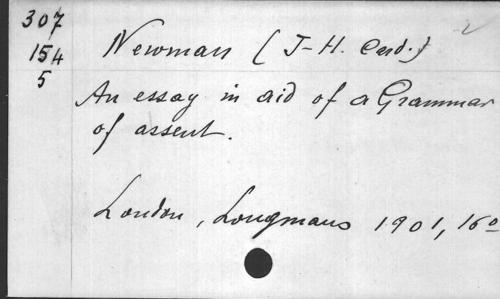 307
154
5
Newman (J-H. Card.)
An essay in aid of a Grammar
of assent.
London, Longmans 1901, 16o